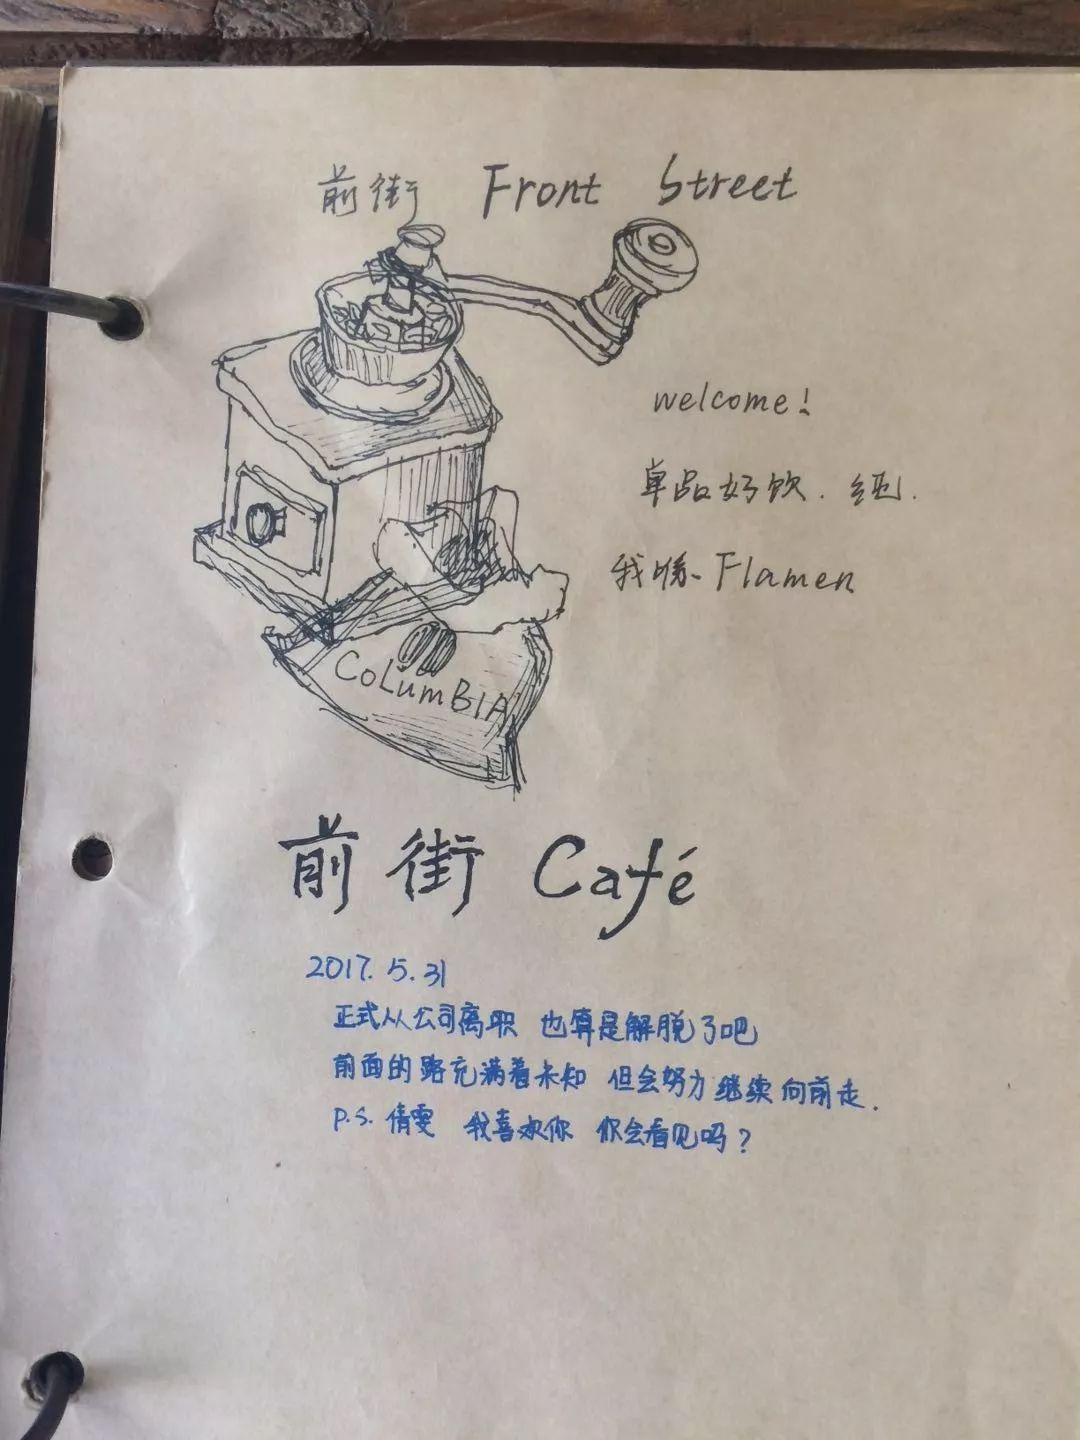 前街 Front Street
welcome!
单品好饮. 纯.
我喺 Flamen
COLUMBIA
前街 Café
2017. 5. 31
正式从公司离职 也算是解脱了吧
前面的路充满着未知 但会努力继续向前走.
P.S. 倩雯 我喜欢你 你会看见吗?